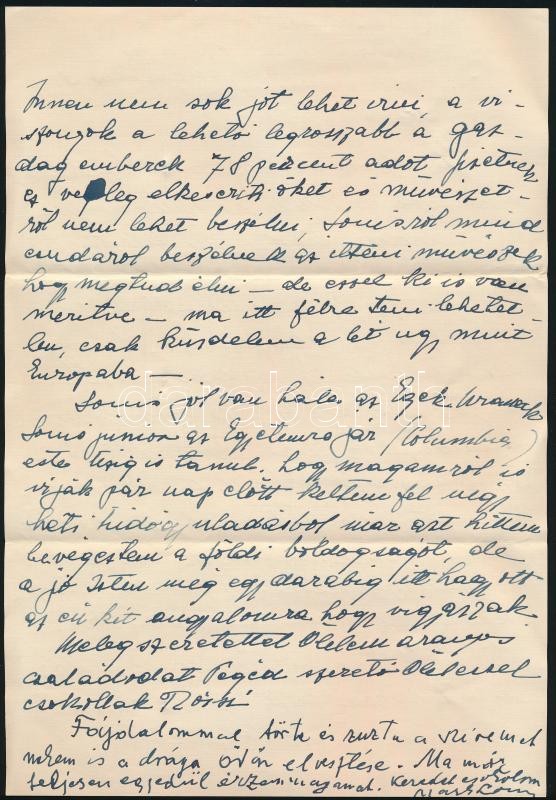 Innen nem sok jót lehet irni, a vi-
szonyok a lehető legrosszabb a gaz-
dag emberek 78 percent adot fizetnek
és végleg elkeseriti őket és művészet-
ről nem lehet beszélni, Louisról mind
csudáról beszélnek az itteni művészek
hogy megtud élni – de ezzel ki is van
meritve – ma itt félre tenni lehetet-
len, csak küzdelem a lét ugy mint
Europaba –
Louis jól van hála az Egek Urának
Louis junior az Egyetemre jár (Columbia)
este tizig is tanul. hogy magamról is
irjak pár nap előtt keltem fel négy
heti tüdőgyulladásbol már azt hittem
bevégeztem a földi boldogságot, de
a jó Isten még egy darabig itt hagyott
az én két angyalomra hogy vigyázzak
Meleg szeretettel Ölelem aranyos
családodat Téged szerető Öleléssel
csokollak Rózsi
Fájdalommal törte és zuzta a szivemet
nekem is a drága Ödön elvesztése. Ma már
teljesen egyedül érzem magamat.
darabanth